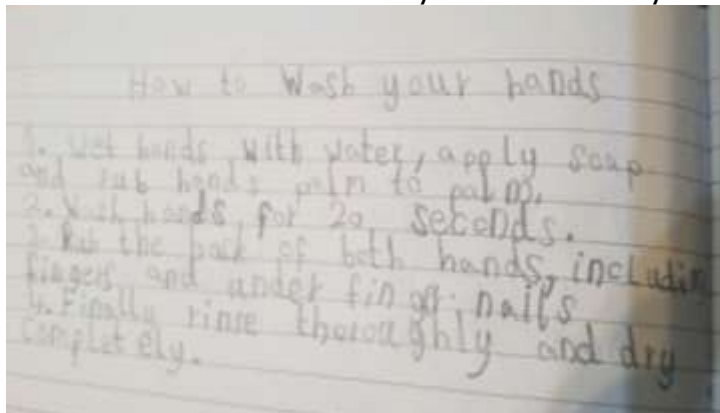 How to Wash your hands
1. Wet hands with water, apply soap
and rub hands palm to palm.
2. Wash hands for 20 seconds.
3. Rub the back of both hands, includin
fingers and under finger nails
4. Finally rinse thoroughly and dry
Completely.